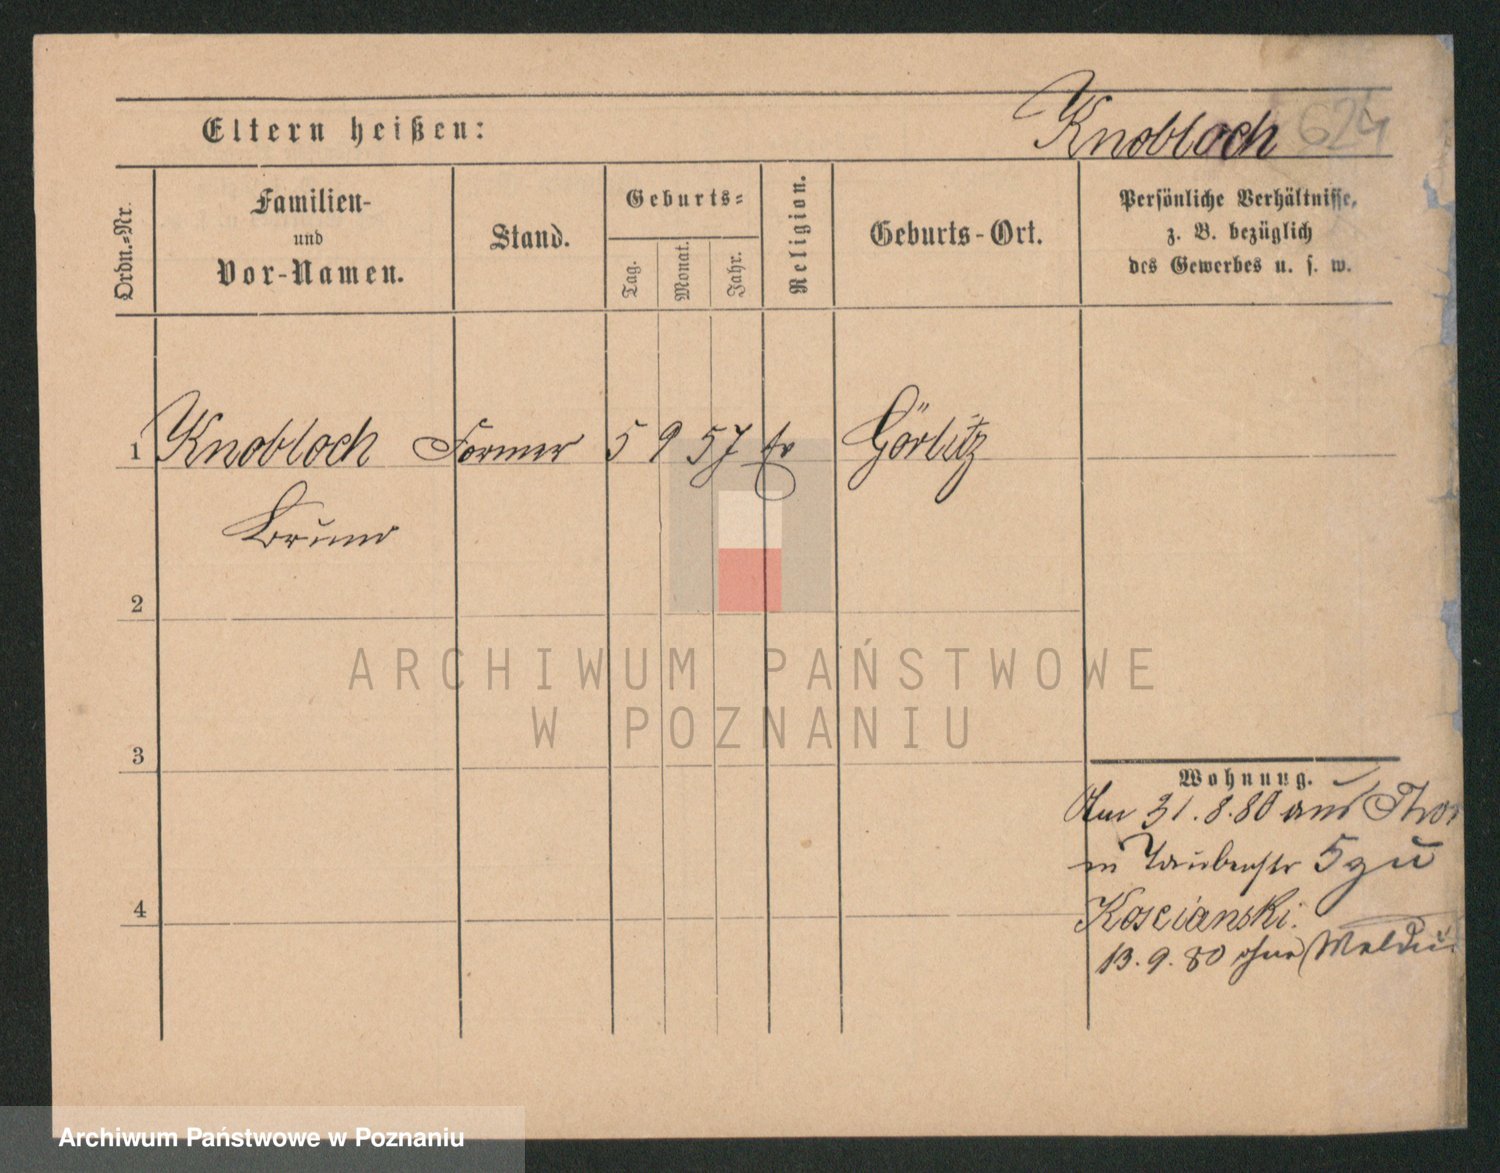 Eltern heißen:
Knobloch 624
Ordn.=Nr.
Familien-
und
Vor-Namen.
Stand.
Geburts=
Tag.
Monat.
Jahr.
Religion.
Geburts-Ort.
Persönliche Verhältnisse,
z. B. bezüglich
des Gewerbes u. s. w.
1 Knobloch Former 5 9 57 ev Görlitz
Bruno
2
3
4
Wohnung.
Am 31.8.80 aus Thor
in Taubenstr 5 zu
Koscianski.
13.9.80 ohne Meldu
ARCHIWUM PAŃSTWOWE
W POZNANIU
Archiwum Państwowe w Poznaniu